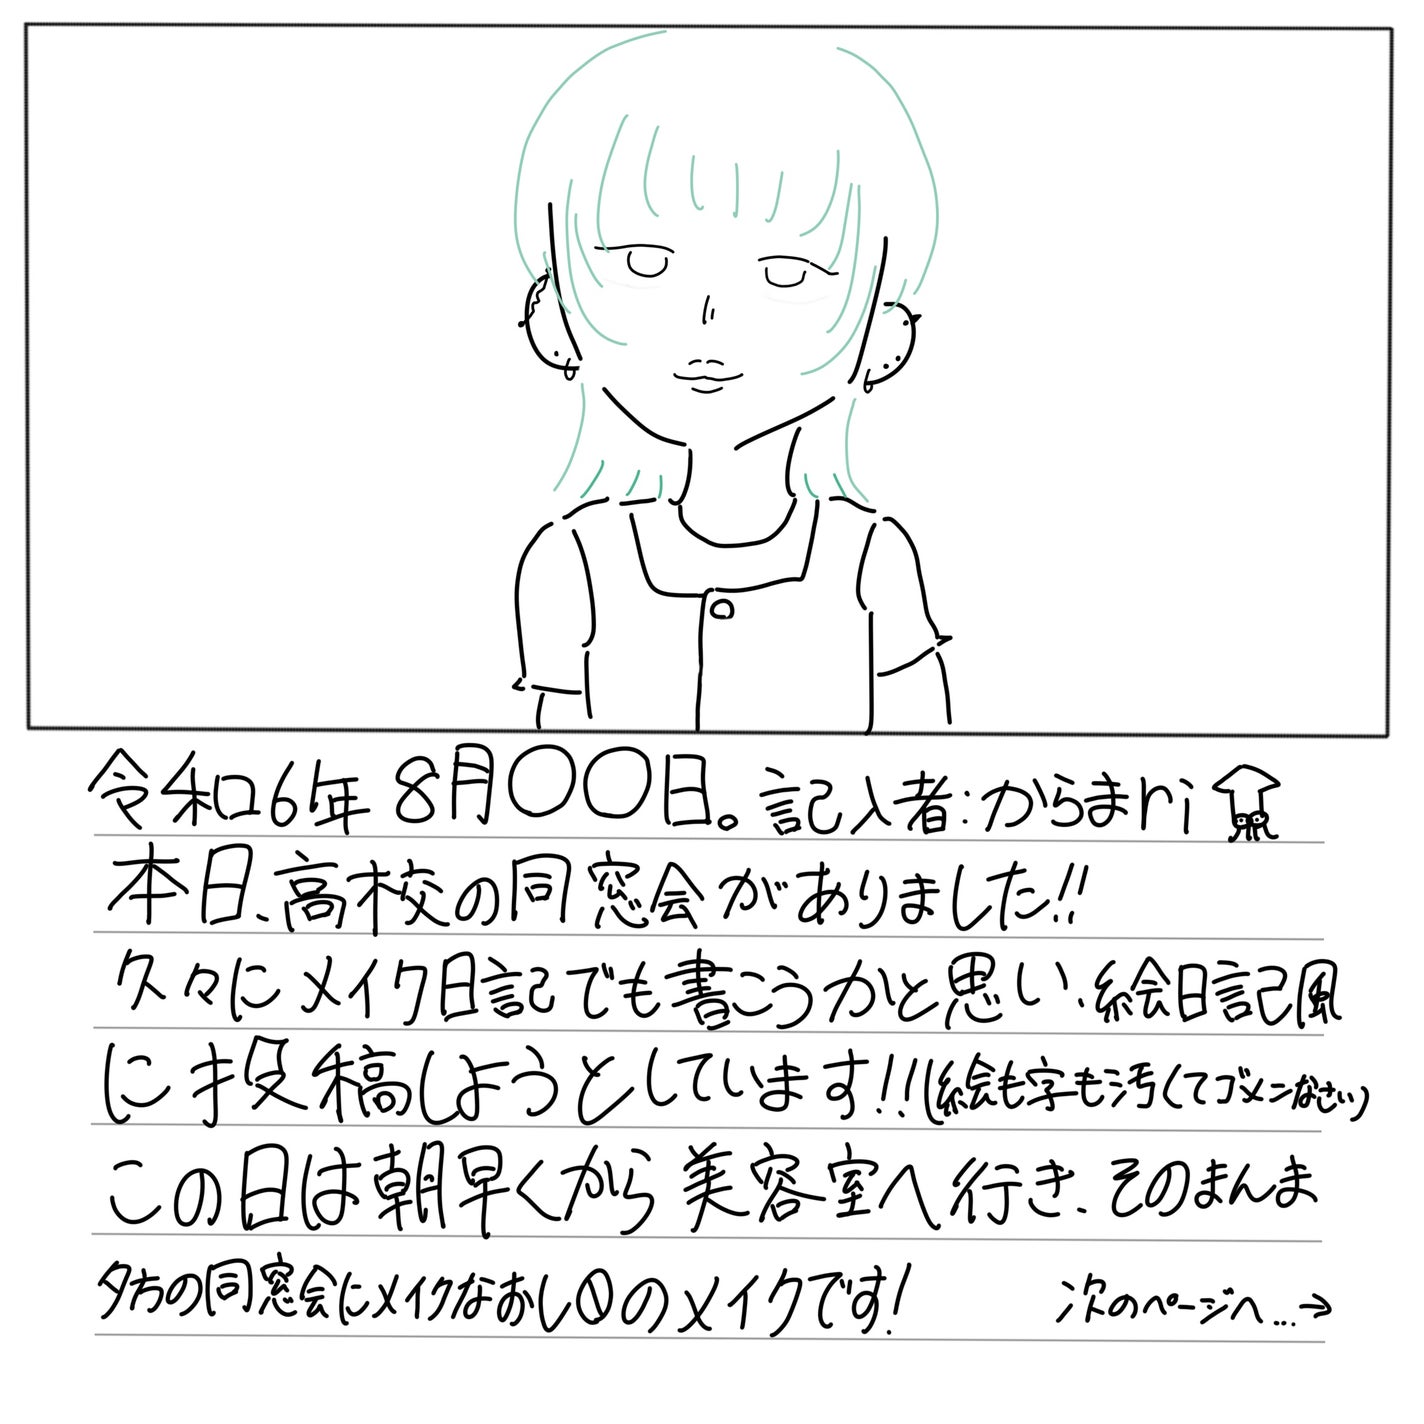 令和6年 8月〇〇日。記入者:からまri
本日、高校の同窓会がありました!!
久々にメイク日記でも書こうかと思い、絵日記風
に投稿しようとしています!!(絵も字も汚くてゴメンなさい)
この日は朝早くから美容室へ行き、そのまんま
夕方の同窓会にメイクなおし🚫のメイクです!
次のページへ...→